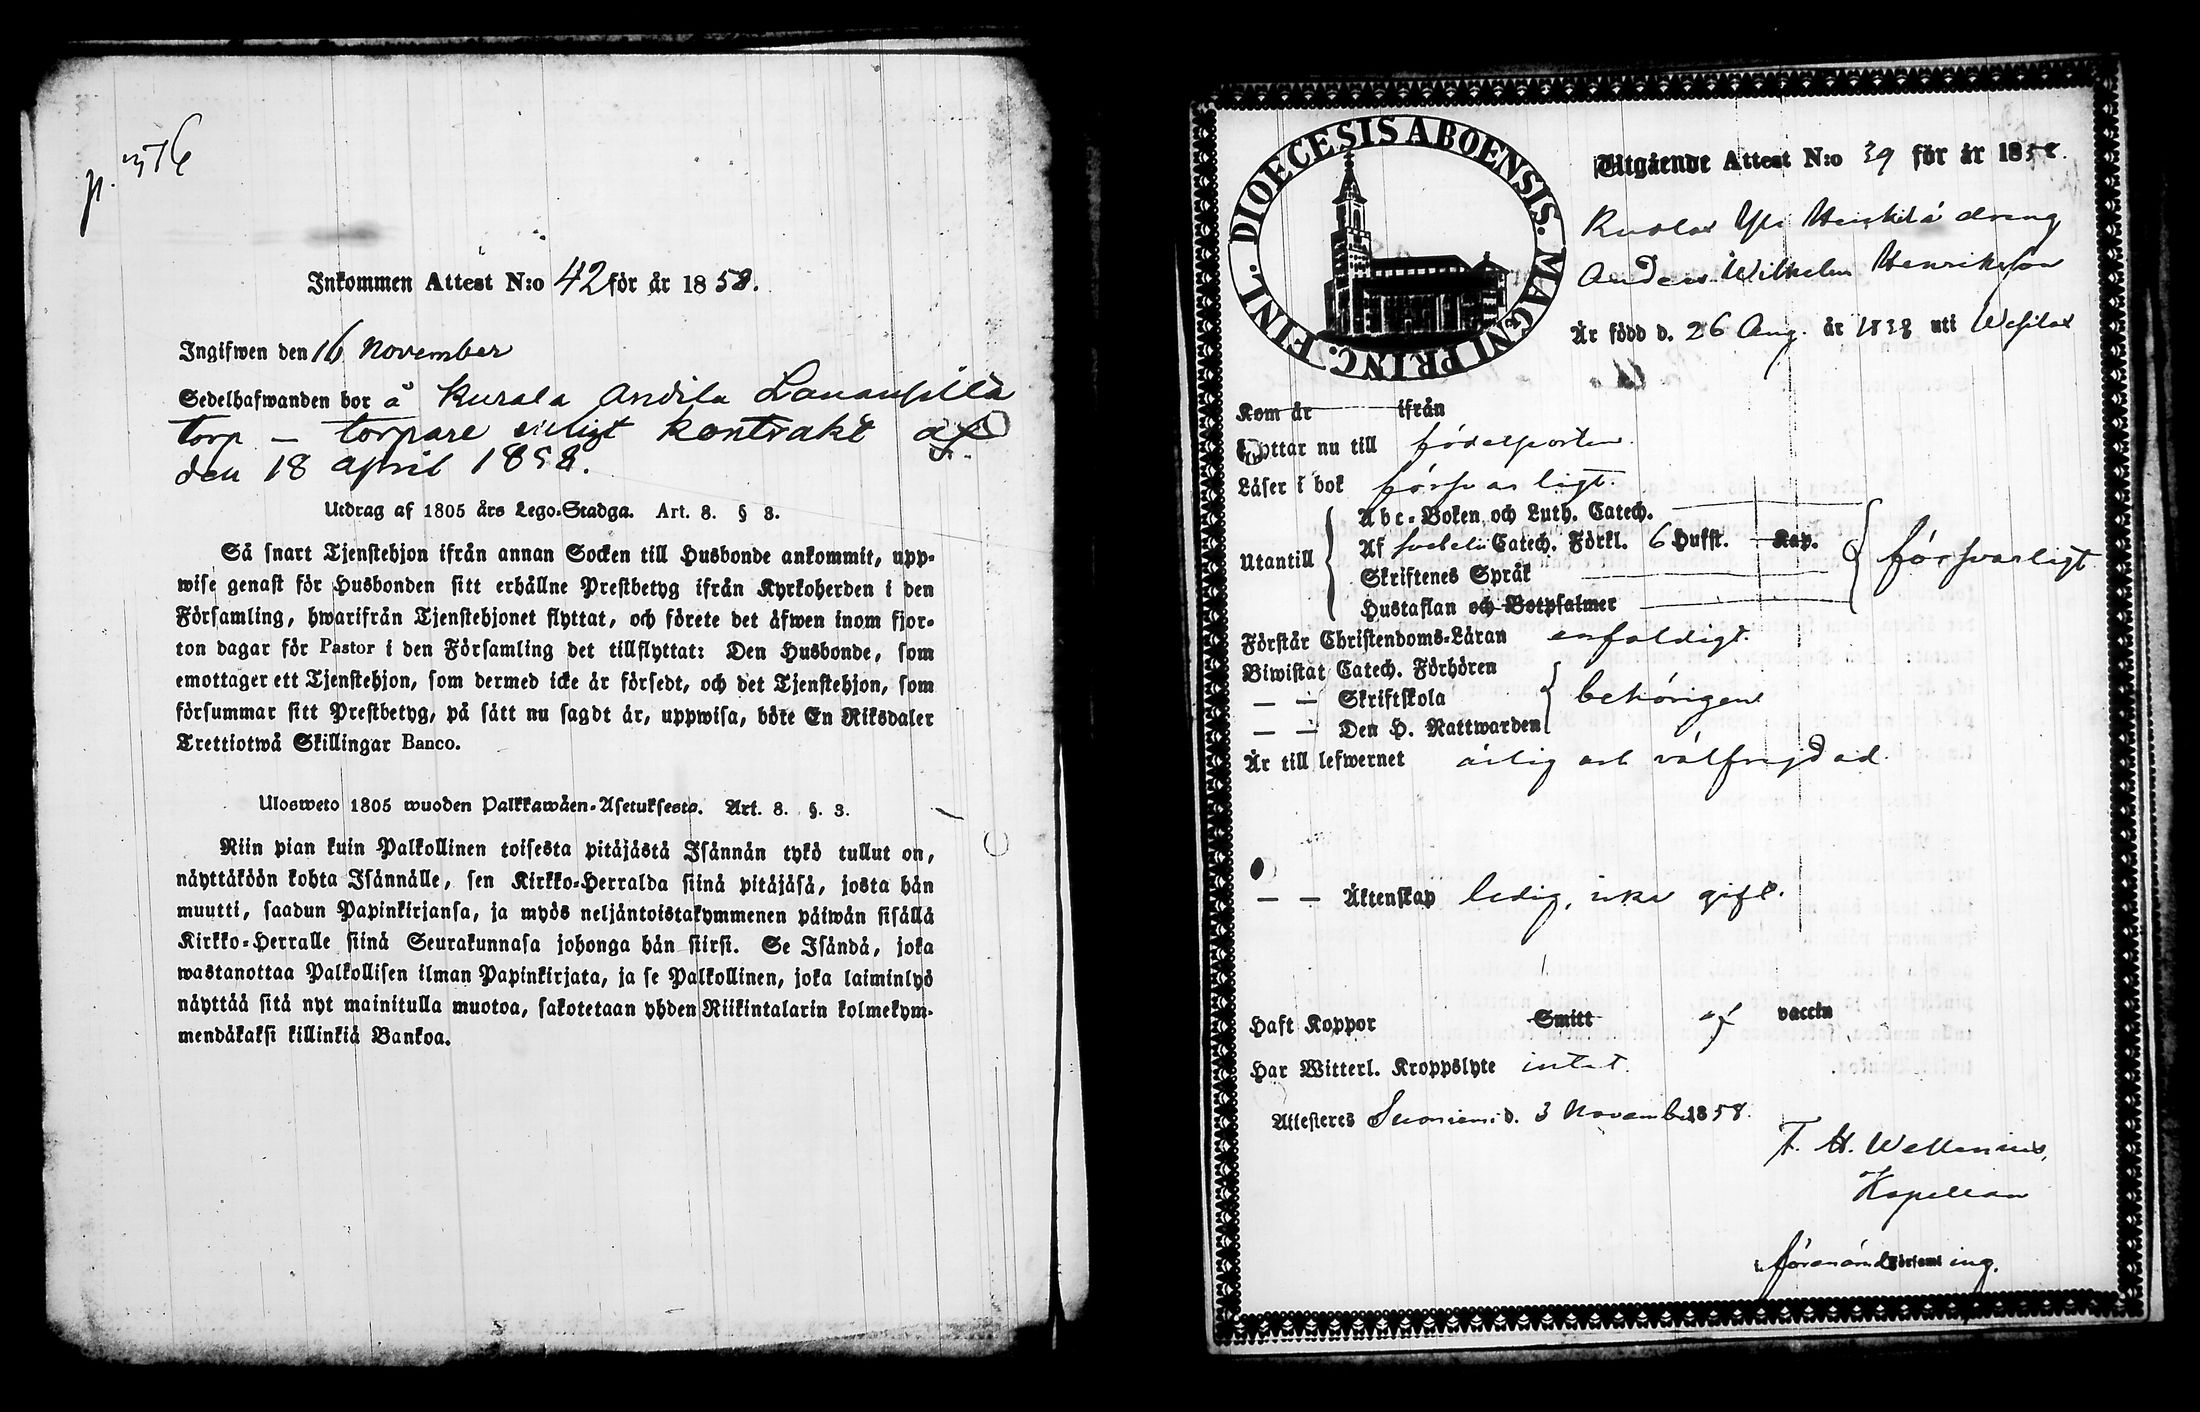 p. 376
Inkommen Attest N:o 42 för år 1858.
Ingifwen den 16 November
Sedelhafwanden bor å Kurala Andila
torp – torpare enligt kontrakt af
den 18 april 1858.
Utdrag af 1805 års Lego-Stadga. Art. 8. § 3.
Så snart Tjenstehjon ifrån annan Socken till Husbonde ankommit, upp-
wise genast för Husbonden sitt erhållne Prestbetyg ifrån Kyrkoherden i den
Församling, hwarifrån Tjenstehjonet flyttat, och förete det äfwen inom fjor-
ton dagar för Pastor i den Församling det tillflyttat: Den Husbonde, som
emottager ett Tjenstehjon, som dermed icke är försedt, och det Tjenstehjon, som
försummar sitt Prestbetyg, på sätt nu sagdt är, uppwisa, böte En Riksdaler
Trettiotwå Skillingar Banco.
Ulosweto 1805 wuoden Palkkawäen-Asetuksesta. Art. 8. §. 3.
Niin pian kuin Palkollinen toisesta pitäjästä Isännän tykö tullut on,
näyttäköön kohta Isännälle, sen Kirkko-Herralda siinä pitäjäsä, josta hän
muutti, saadun Papinkirjansa, ja myös neljäntoistakymmenen päiwän sisällä
Kirkko-Herralle siinä Seurakunnasa johonga hän siirsi. Se Isändä, joka
wastanottaa Palkollisen ilman Papinkirjata, ja se Palkollinen, joka laiminlyö
näyttää sitä nyt mainitulla muotoa, sakotetaan yhden Riikintalarin kolmekym-
mendäkaksi killinkiä Bankoa.
DIOECESIS ABOENSIS. MAGNI PRINC. FINL.
Utgående Attest N:o 39 för år 1858.
dreng
Anders Wilhelm Henriksson
Är född d. 26 Aug. år 1838 uti Wesilax
Kom år ifrån
Flyttar nu till födelseorten.
Läser i bok försvarligt.
Abc-Boken och Luth. Catech.
Utantill Af Svebelii Catech. Förkl. 6 Hufst. Kap. försvarligt
Skriftenes Språk
Hustaflan och Botpsalmer
Förstår Christendoms-Läran enfaldigt.
Biwistat Catech. Förhören
— — Skriftskola behörigen
— — Den H. Nattwarden
Är till lefwernet ärlig och välfrejdad.
— — Äktenskap ledig, icke gift.
Haft Koppor Smitt af vaccin
Har Witterl. Kroppslyte intet.
Attesteres Suoniemi d. 3 November 1858.
T. H. Wellenius,
Kapellan
i förenämnd Församling.